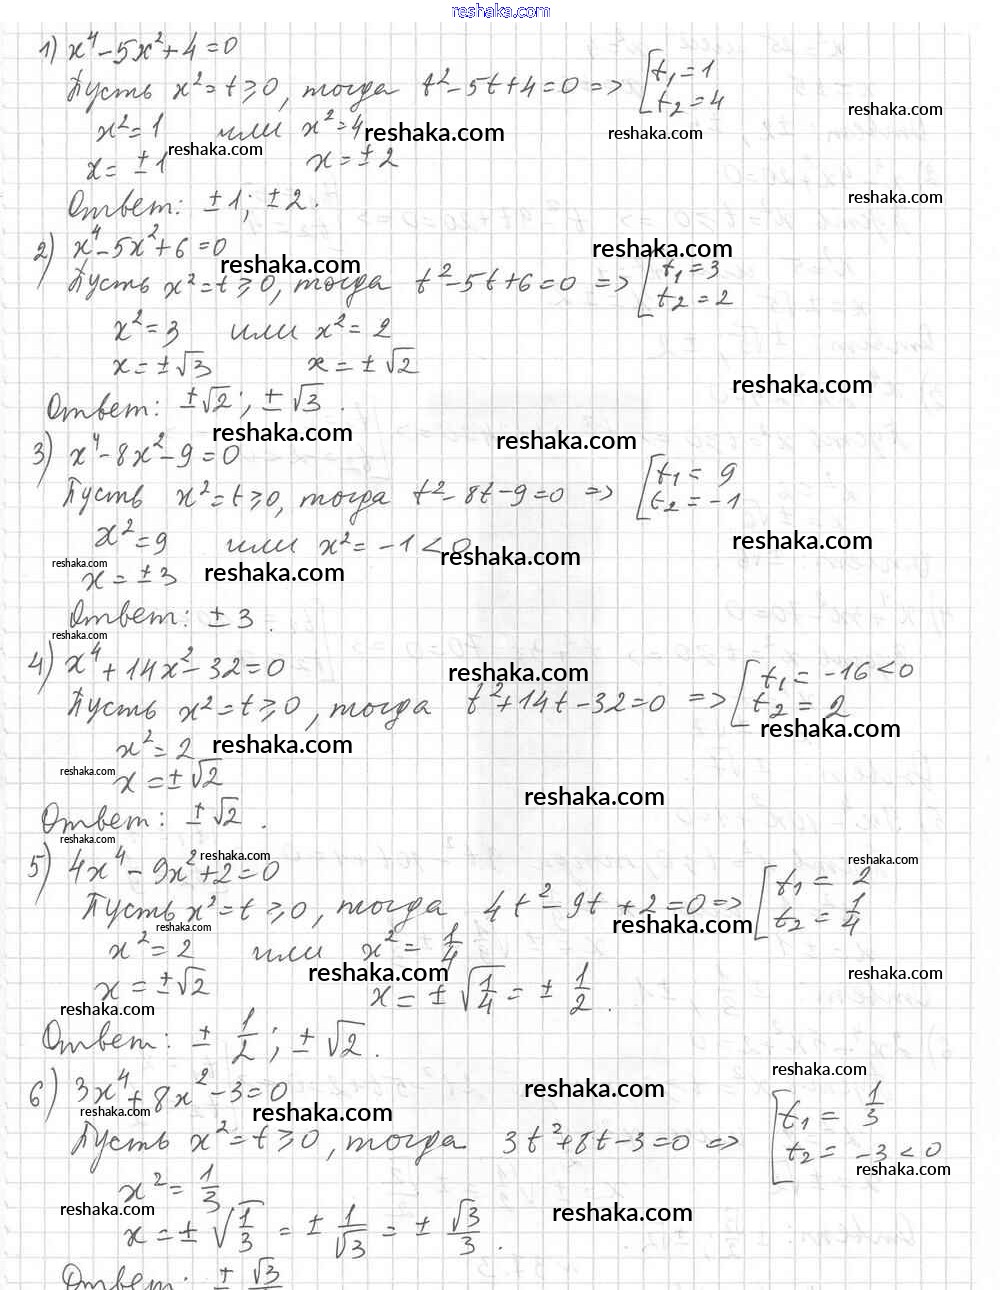 reshaka.com
1) x⁴ - 5x² + 4 = 0
Пусть x² = t ⩾ 0, тогда t² - 5t + 4 = 0 => [t₁ = 1
t₂ = 4
reshaka.com
x² = 1 или x² = 4 reshaka.com reshaka.com
x = ± 1 reshaka.com x = ± 2
Ответ: ± 1; ± 2. reshaka.com
2) x⁴ - 5x² + 6 = 0
reshaka.com reshaka.com
Пусть x² = t ⩾ 0, тогда t² - 5t + 6 = 0 => [t₁ = 3
t₂ = 2
x² = 3 или x² = 2
x = ± √3 x = ± √2
reshaka.com
Ответ: ± √2; ± √3.
reshaka.com reshaka.com
3) x⁴ - 8x² - 9 = 0
Пусть x² = t ⩾ 0, тогда t² - 8t - 9 = 0 => [t₁ = 9
t₂ = -1
x² = 9 или x² = -1 < 0 reshaka.com
reshaka.com reshaka.com reshaka.com
x = ± 3
Ответ: ± 3.
reshaka.com
4) x⁴ + 14x² - 32 = 0
reshaka.com
Пусть x² = t ⩾ 0, тогда t² + 14t - 32 = 0 => [t₁ = -16 < 0
t₂ = 2
reshaka.com
x² = 2 reshaka.com
reshaka.com
x = ± √2
reshaka.com
Ответ: ± √2.
reshaka.com
5) 4x⁴ - 9x² + 2 = 0 reshaka.com reshaka.com
Пусть x² = t ⩾ 0, тогда 4t² - 9t + 2 = 0 => [t₁ = 2
t₂ = 1/4
reshaka.com reshaka.com
x² = 2 или x² = 1/4
reshaka.com reshaka.com
x = ± √2 x = ± √1/4 = ± 1/2.
reshaka.com
Ответ: ± 1/2; ± √2.
reshaka.com
6) 3x⁴ + 8x² - 3 = 0 reshaka.com
reshaka.com reshaka.com
Пусть x² = t ⩾ 0, тогда 3t² + 8t - 3 = 0 => [t₁ = 1/3
t₂ = -3 < 0
reshaka.com
x² = 1/3
reshaka.com reshaka.com
x = ± √1/3 = ± 1/√3 = ± √3/3.
Ответ: ± √3